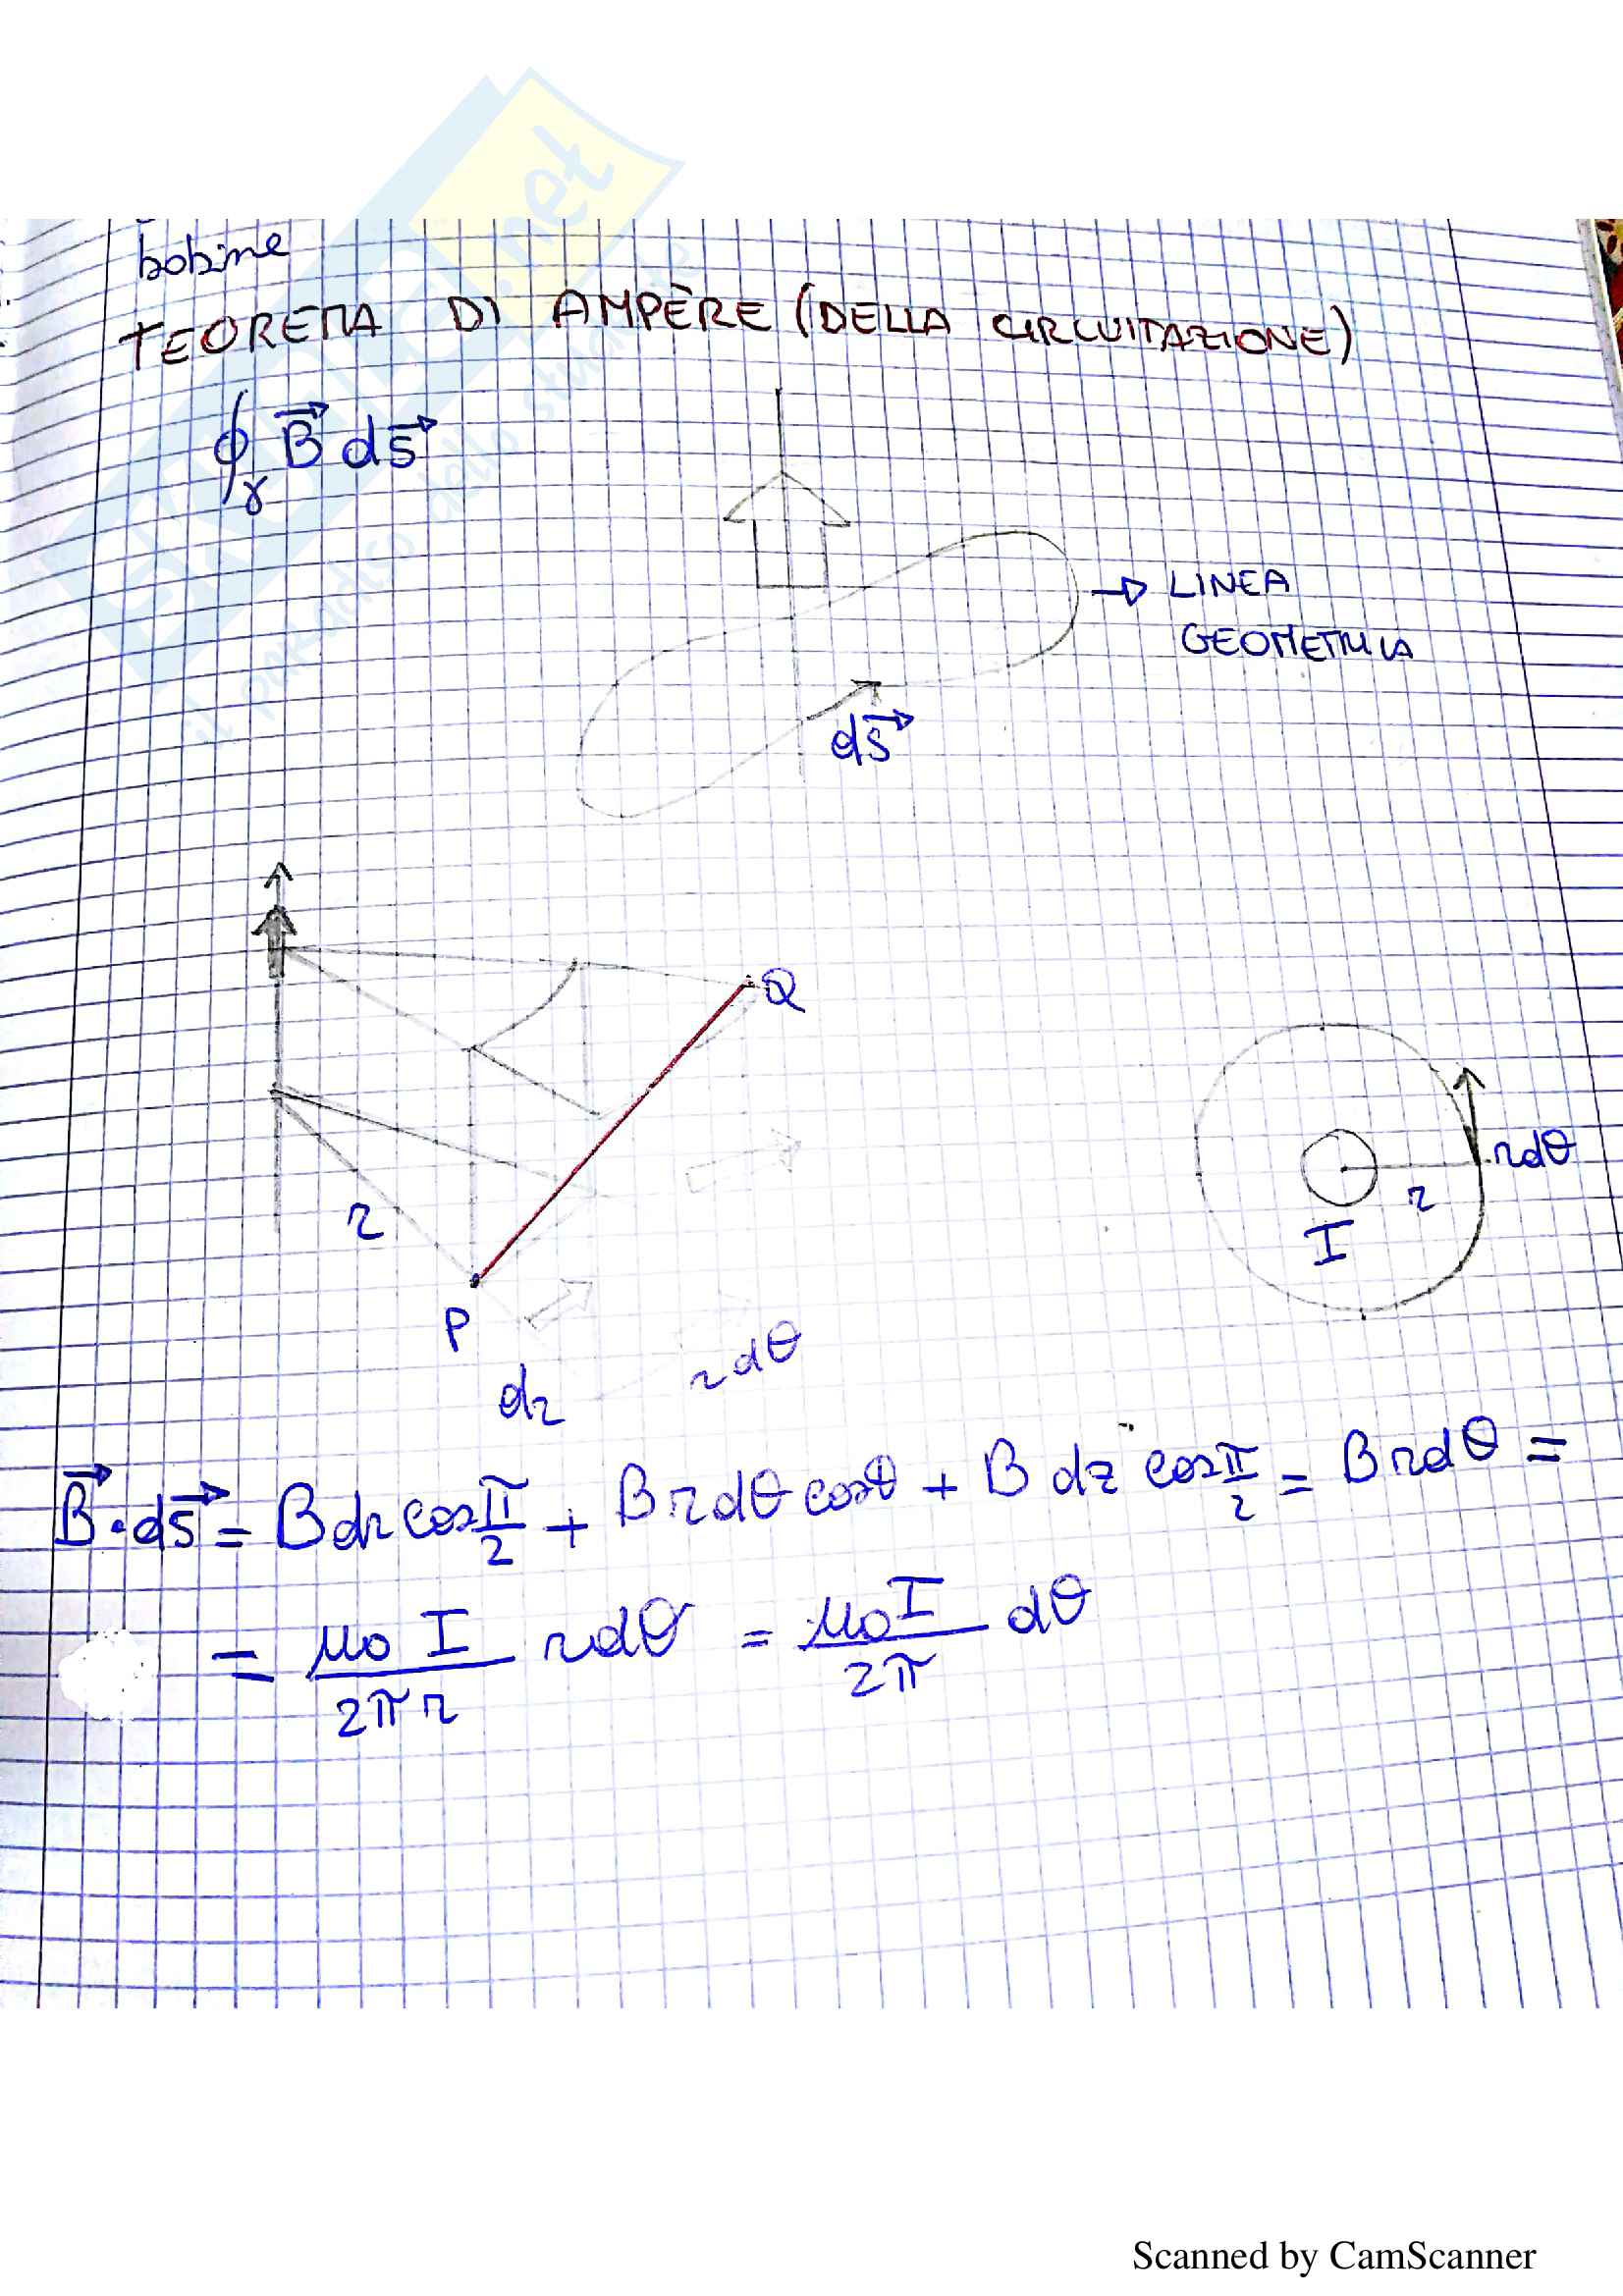 bobine
TEOREMA DI AMPÈRE (DELLA CIRCUITAZIONE)
∮γ B⃗ ds⃗
→ LINEA
GEOMETRICA
ds⃗
Q
r
P
dr
rdθ
rdθ
r
I
B⃗ · ds⃗ = B dr cos π/2 + B r dθ cos θ + B dz cos π/2 = B r dθ =
= μ₀ I / 2πr r dθ = μ₀ I / 2π dθ
.net
il paradiso dello studente
Scanned by CamScanner